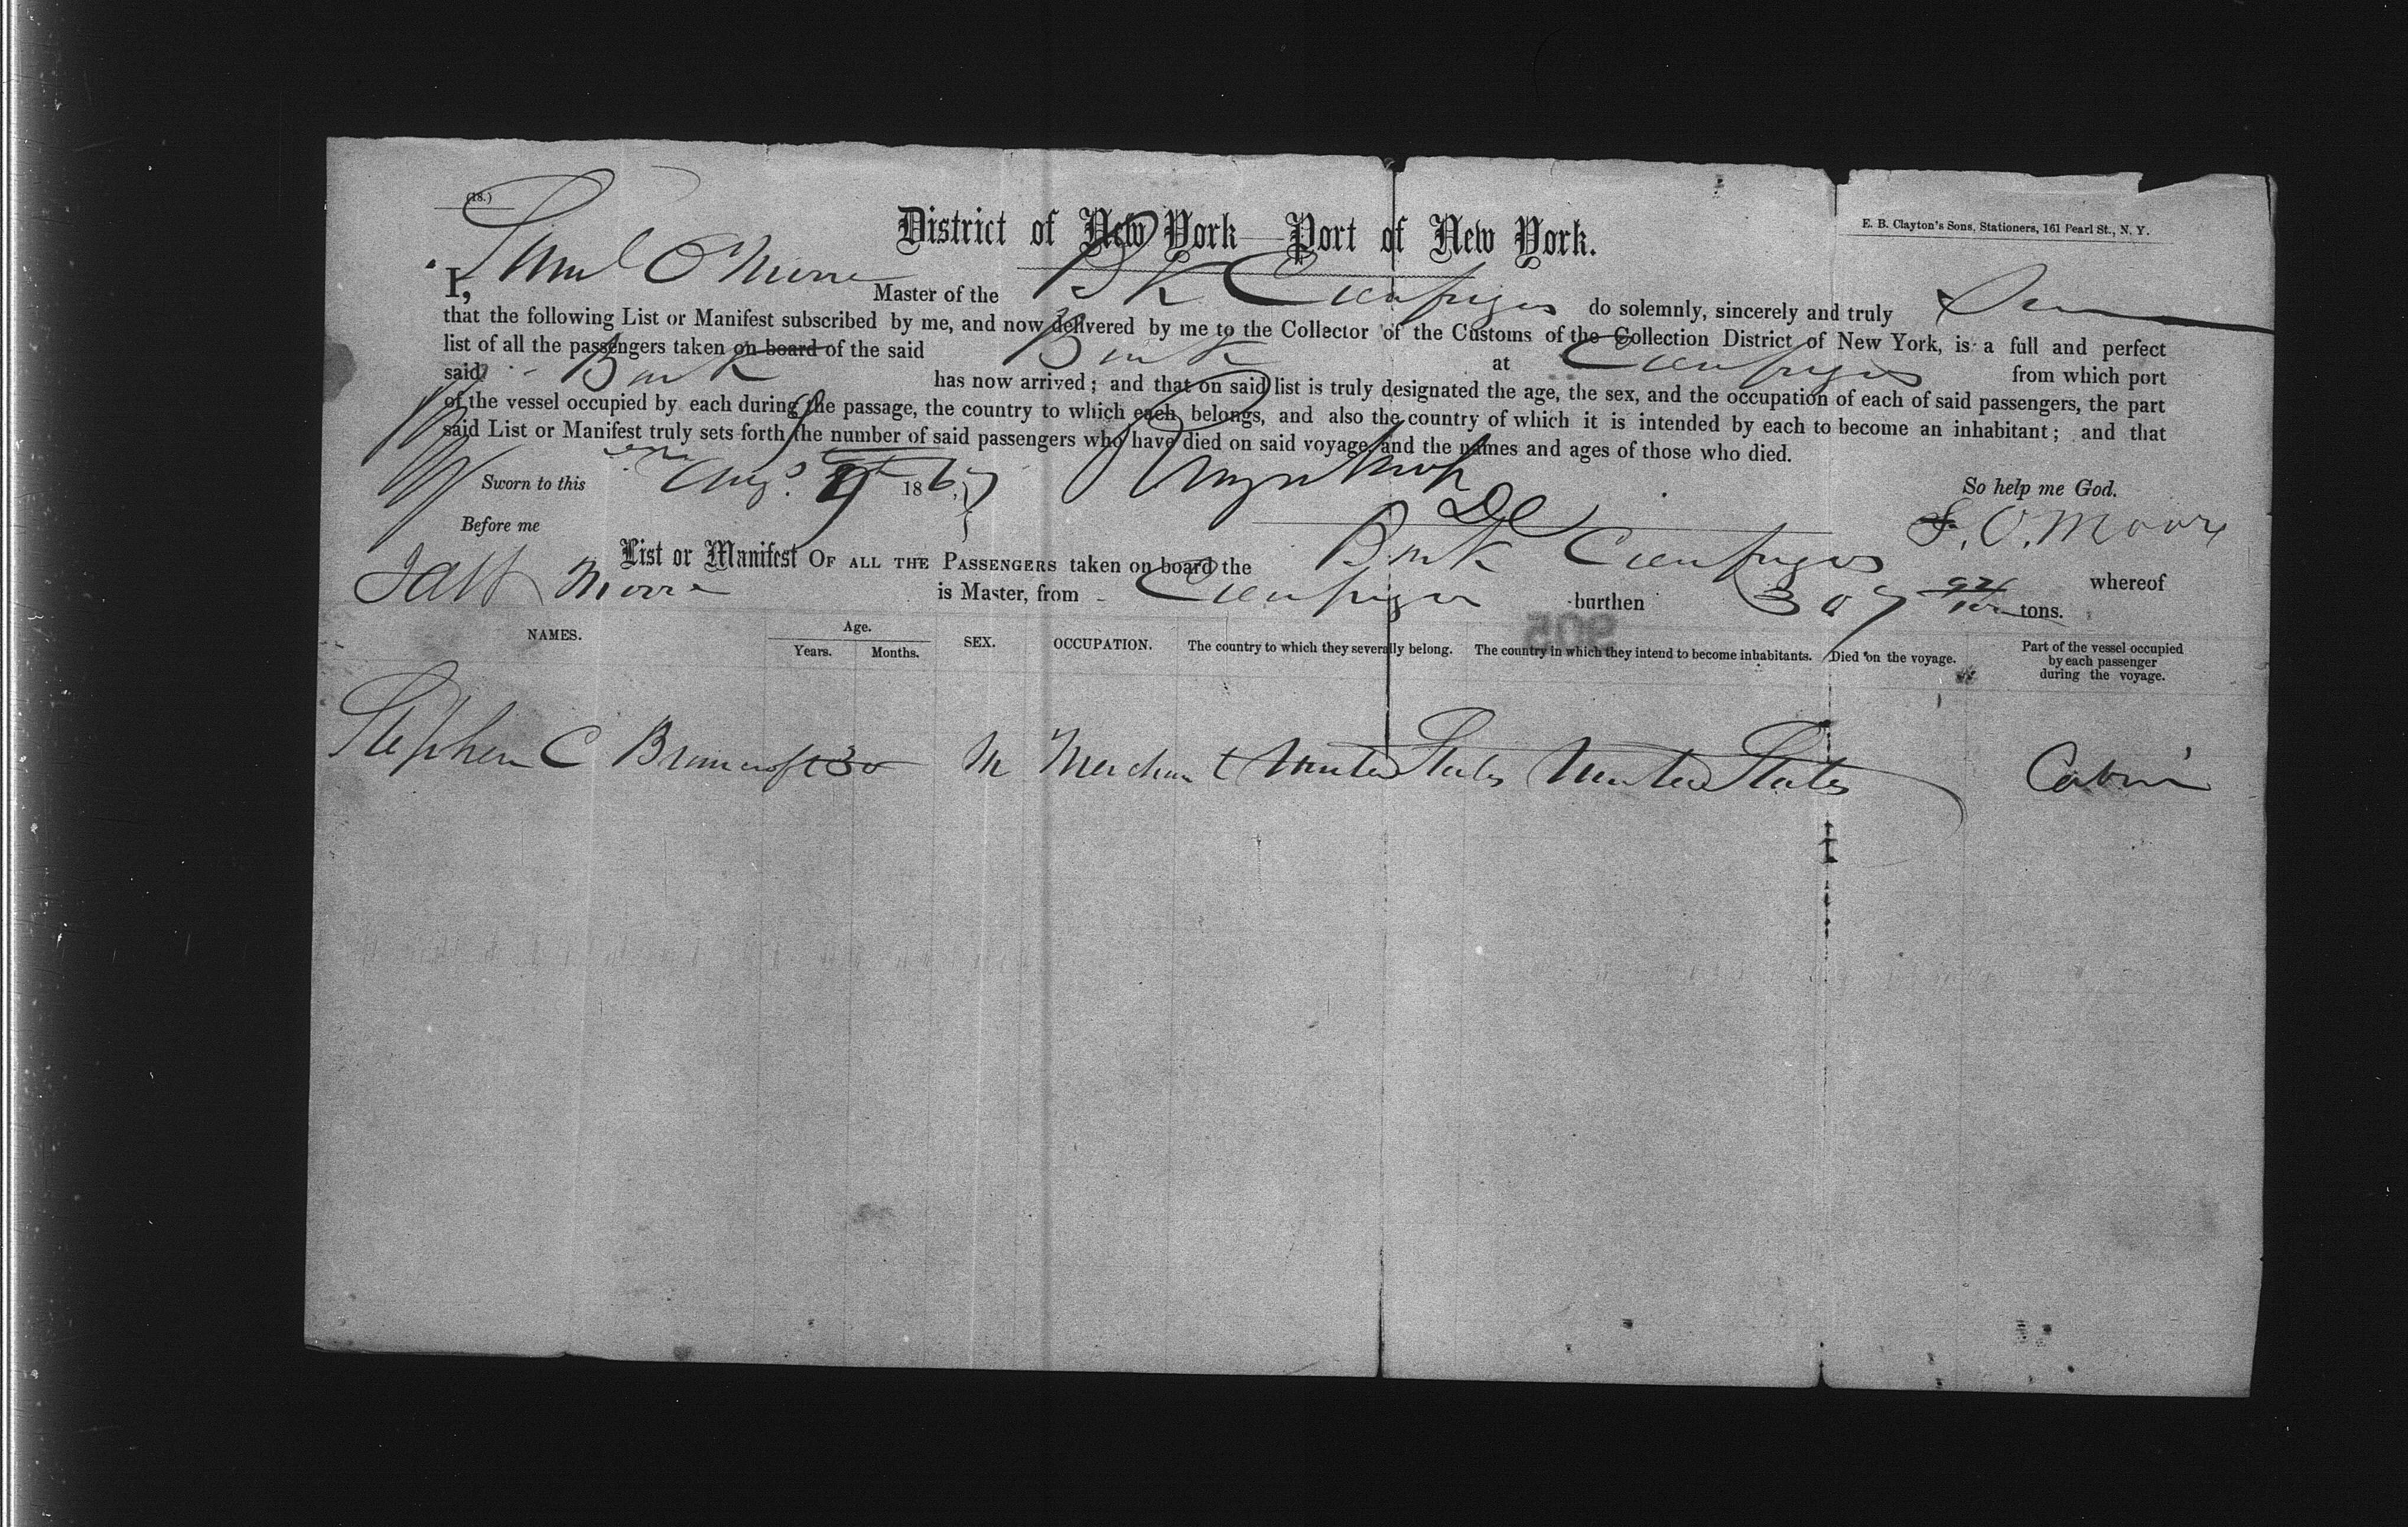 (18.)
District of New York—Port of New York.
E. B. Clayton's Sons, Stationers, 161 Pearl St., N. Y.
I, Saml O Moore Master of the Bk Cienfuegos do solemnly, sincerely and truly
that the following List or Manifest subscribed by me, and now delivered by me to the Collector of the Customs of the Collection District of New York, is a full and perfect
list of all the passengers taken on board of the said Bark at Cienfuegos from which port
said Bark has now arrived; and that on said list is truly designated the age, the sex, and the occupation of each of said passengers, the part
of the vessel occupied by each during the passage, the country to which each belongs, and also the country of which it is intended by each to become an inhabitant; and that
said List or Manifest truly sets forth the number of said passengers who have died on said voyage, and the names and ages of those who died.
Sworn to this Aug. 9 1867
So help me God.
Before me
S. O. Moore
List or Manifest OF ALL THE PASSENGERS taken on board the Bark Cienfuegos whereof
Moore is Master, from Cienfuegos burthen 307 tons.
905
NAMES. Age. Years. Months. SEX. OCCUPATION. The country to which they severally belong. The country in which they intend to become inhabitants. Died on the voyage. Part of the vessel occupied by each passenger during the voyage.
Stephen C 30 M Merchant United States United States Cabin